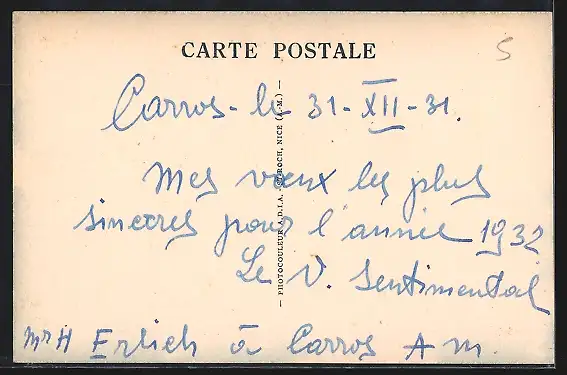 CARTE POSTALE
5
Carros - le 31 - XII - 31.
Mes vœux les plus
sincères pour l'année 1932
Le V. Sentimental
Mr H Erlich à Carros A m.
— PHOTOCOULEUR A.D.I.A., NICE (A.-M.) —